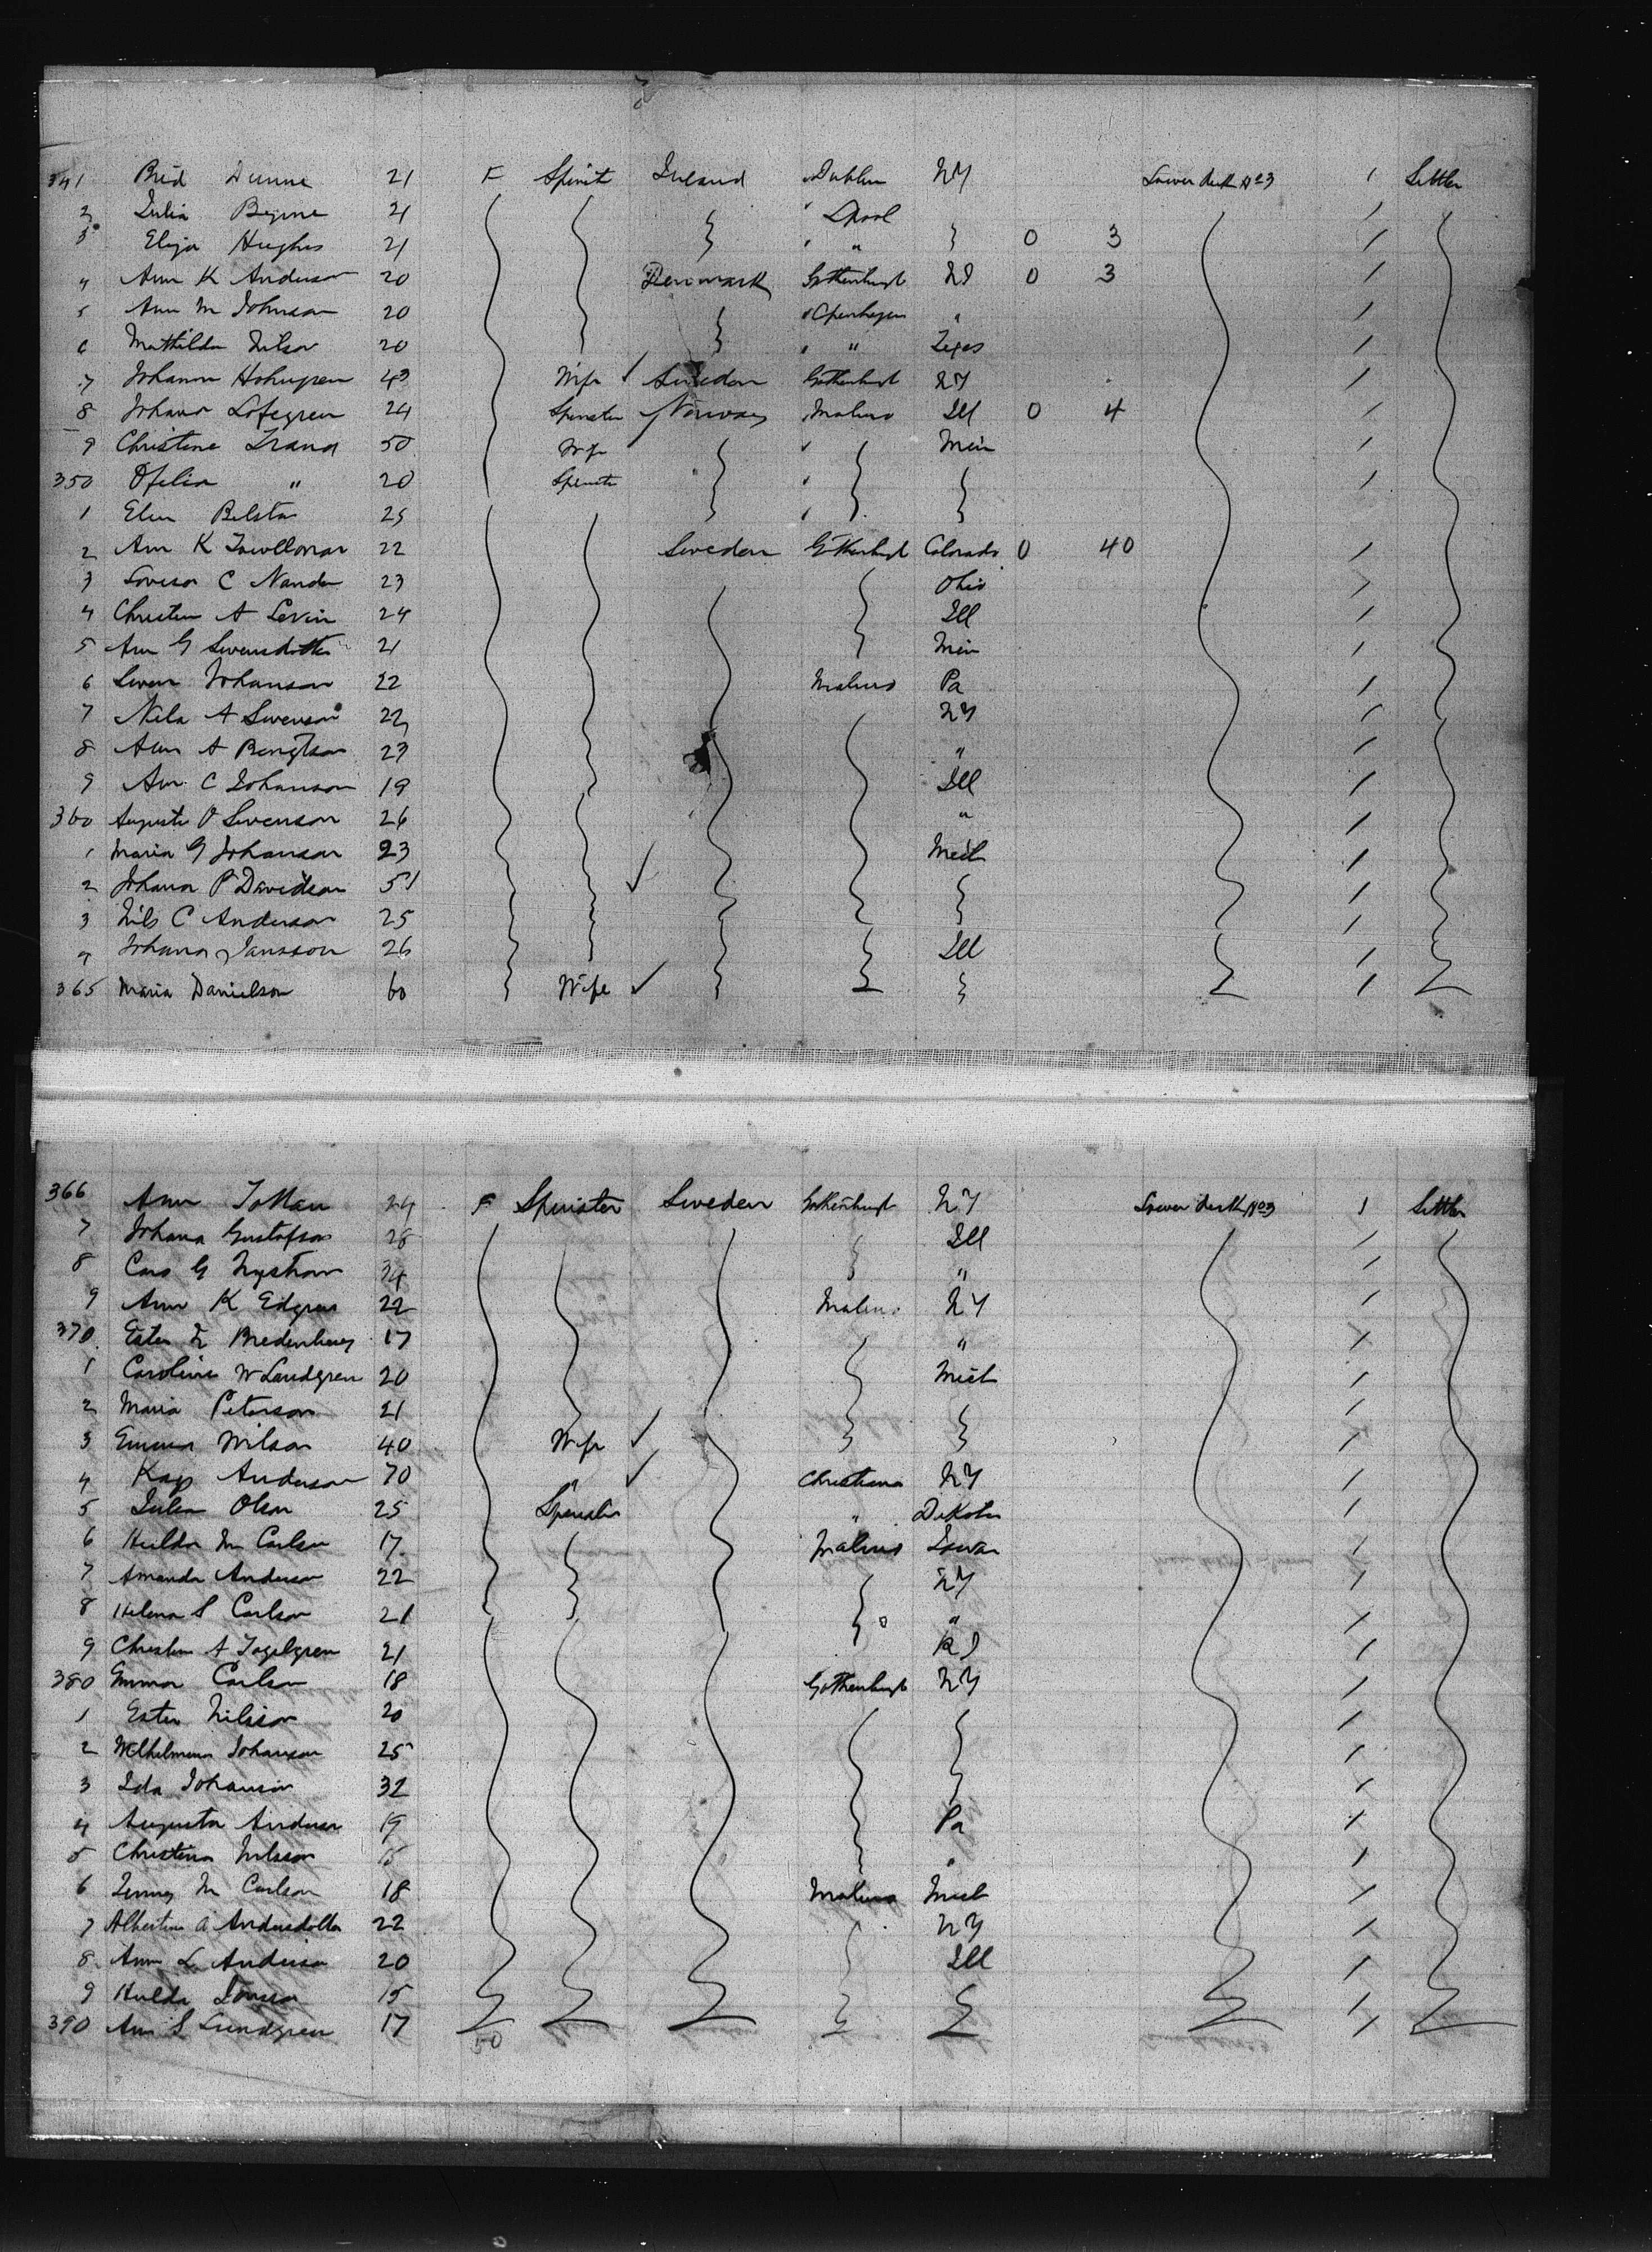 341 Brid Dunne 21 F Spinst Ireland Dublin NY Lower deck No 3 1 Settler
2 Julia Byrne 21 Lpool
3 Eliza Hughes 21 " 0 3
4 Ann K Anderson 20 Denmark Gothenburgh 0 3
5 Ann M Johnson 20 Copenhagen "
6 Mathilda Nilson 20 " Texas
7 Johanna Holmgren 43 Wife Sweden Gothenburgh NY
8 Johana Lofegren 24 Spinster Norway Malmo Ill 0 4
9 Christine 50 Wife Min
350 Ofelia " 20 Spinster
1 Elin 25
2 Ann K 22 Sweden Gothenburgh Colorado 0 40
3 Lovisa C 23 Ohio
4 Christin A Levin 24 Ill
5 Ann G Swensdotter 21 Min
6 Swen Johanson 22 Malmo Pa
7 Nila A Swenson 22 NY
8 Ann A Bengtson 23 "
9 Ann C Johanson 19 Ill
360 Augusta O Swenson 26 "
1 Maria G Johanson 23 Mich
2 Johana P Davidson 51
3 Nils C Anderson 25
4 Johana Jansson 26 Ill
365 Maria Danielson 60 Wife
366 Ann 24 F Spinster Sweden Gothenburgh NY Lower deck No 3 1 Settler
7 Johana Gustafson 28 Ill
8 G Nystrom 34 "
9 Ann K Edgren 22 Malmo NY
370 Ester Bredenberg 17 "
1 Carolina W Landgren 20 Mich
2 Maria Peterson 21
3 Emma Nilson 40 Wife
4 Anderson 70 " Christiana NY
5 Julia Olson 25 Spinster " Dakota
6 Hulda M Carlson 17 Malmo Iowa
7 Amanda Anderson 22 NY
8 Helena S Carlson 21 "
9 Christin A 21 RI
380 Emma Carlson 18 Gothenburgh NY
1 Ester Nilsson 20
2 Wilhelmina Johanson 25
3 Ida Johanson 32
4 Augusta Anderson 19 Pa
5 Christina Nilsson "
6 Jenny M Carlson 18 Malmo Mich
7 Albertina A Andersdotter 22 NY
8 Ann L Anderson 20 Ill
9 Hulda 15
390 Ann S Lundgren 17
50